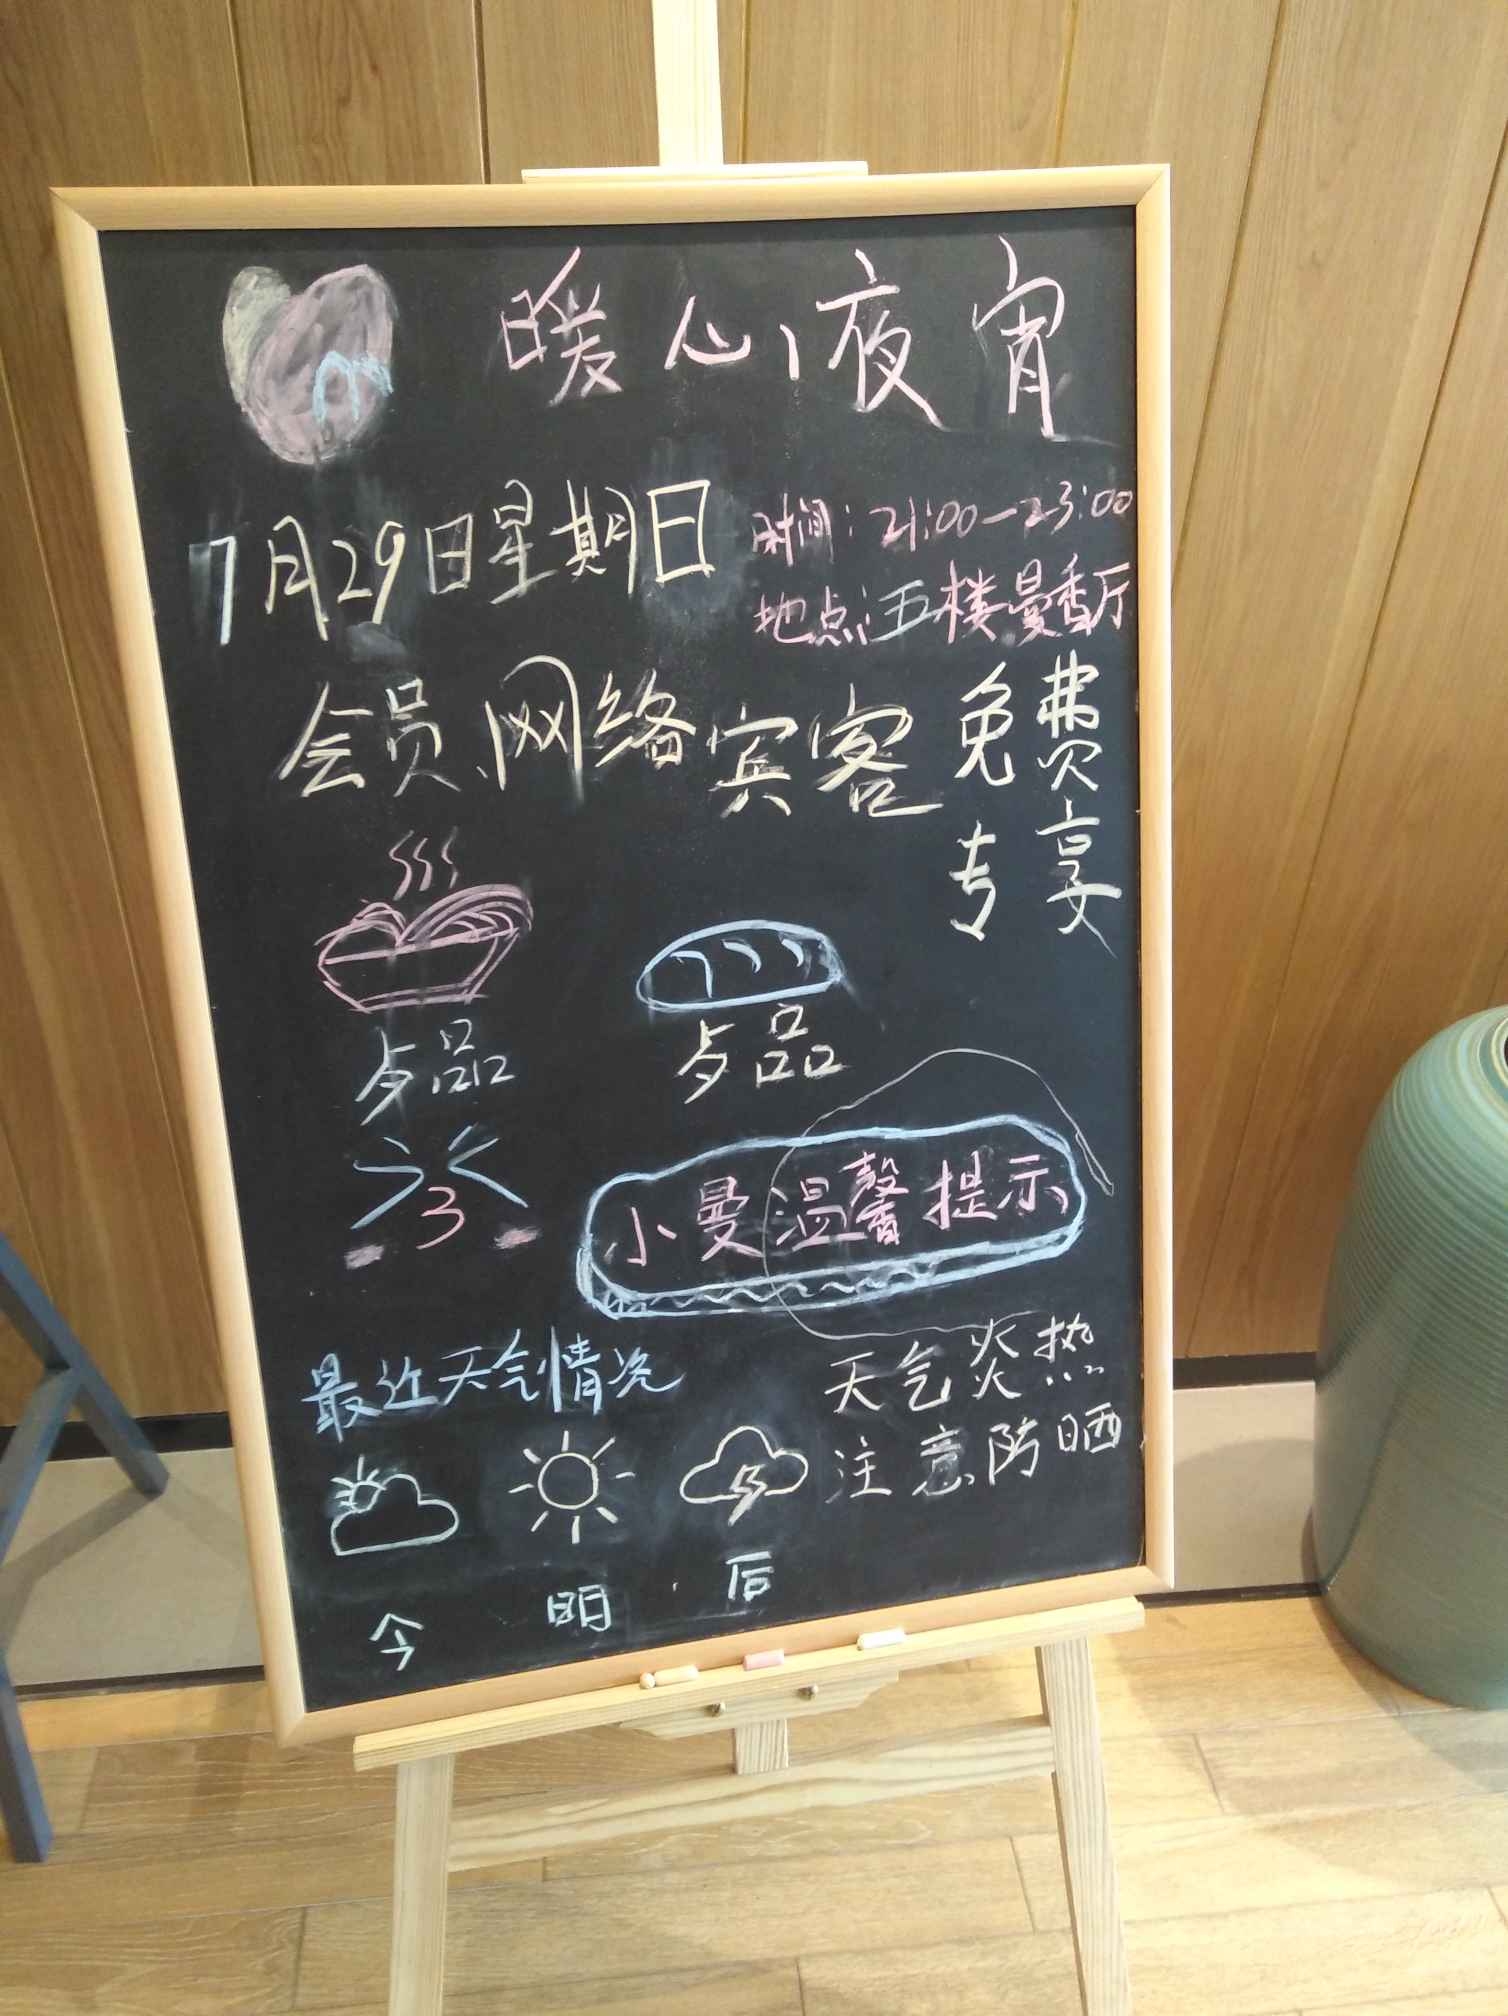 暖心夜宵
7月29日星期日
时间：21:00-23:00
地点：五楼曼香厅
会员、网络宾客
免费
专享
歺品
歺品
小曼温馨提示
最近天气情况
天气炎热
注意防晒
今 明 后